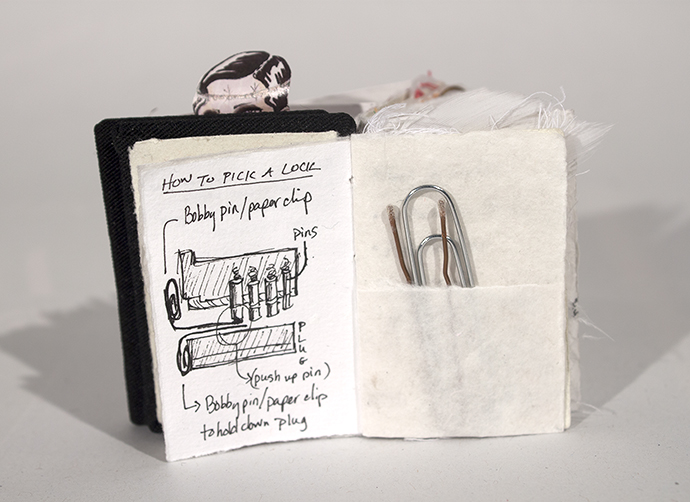 HOW TO PICK A LOCK
Bobby pin/paper clip
pins
PLUG
(push up pin)
Bobby pin/paper clip
to hold down plug